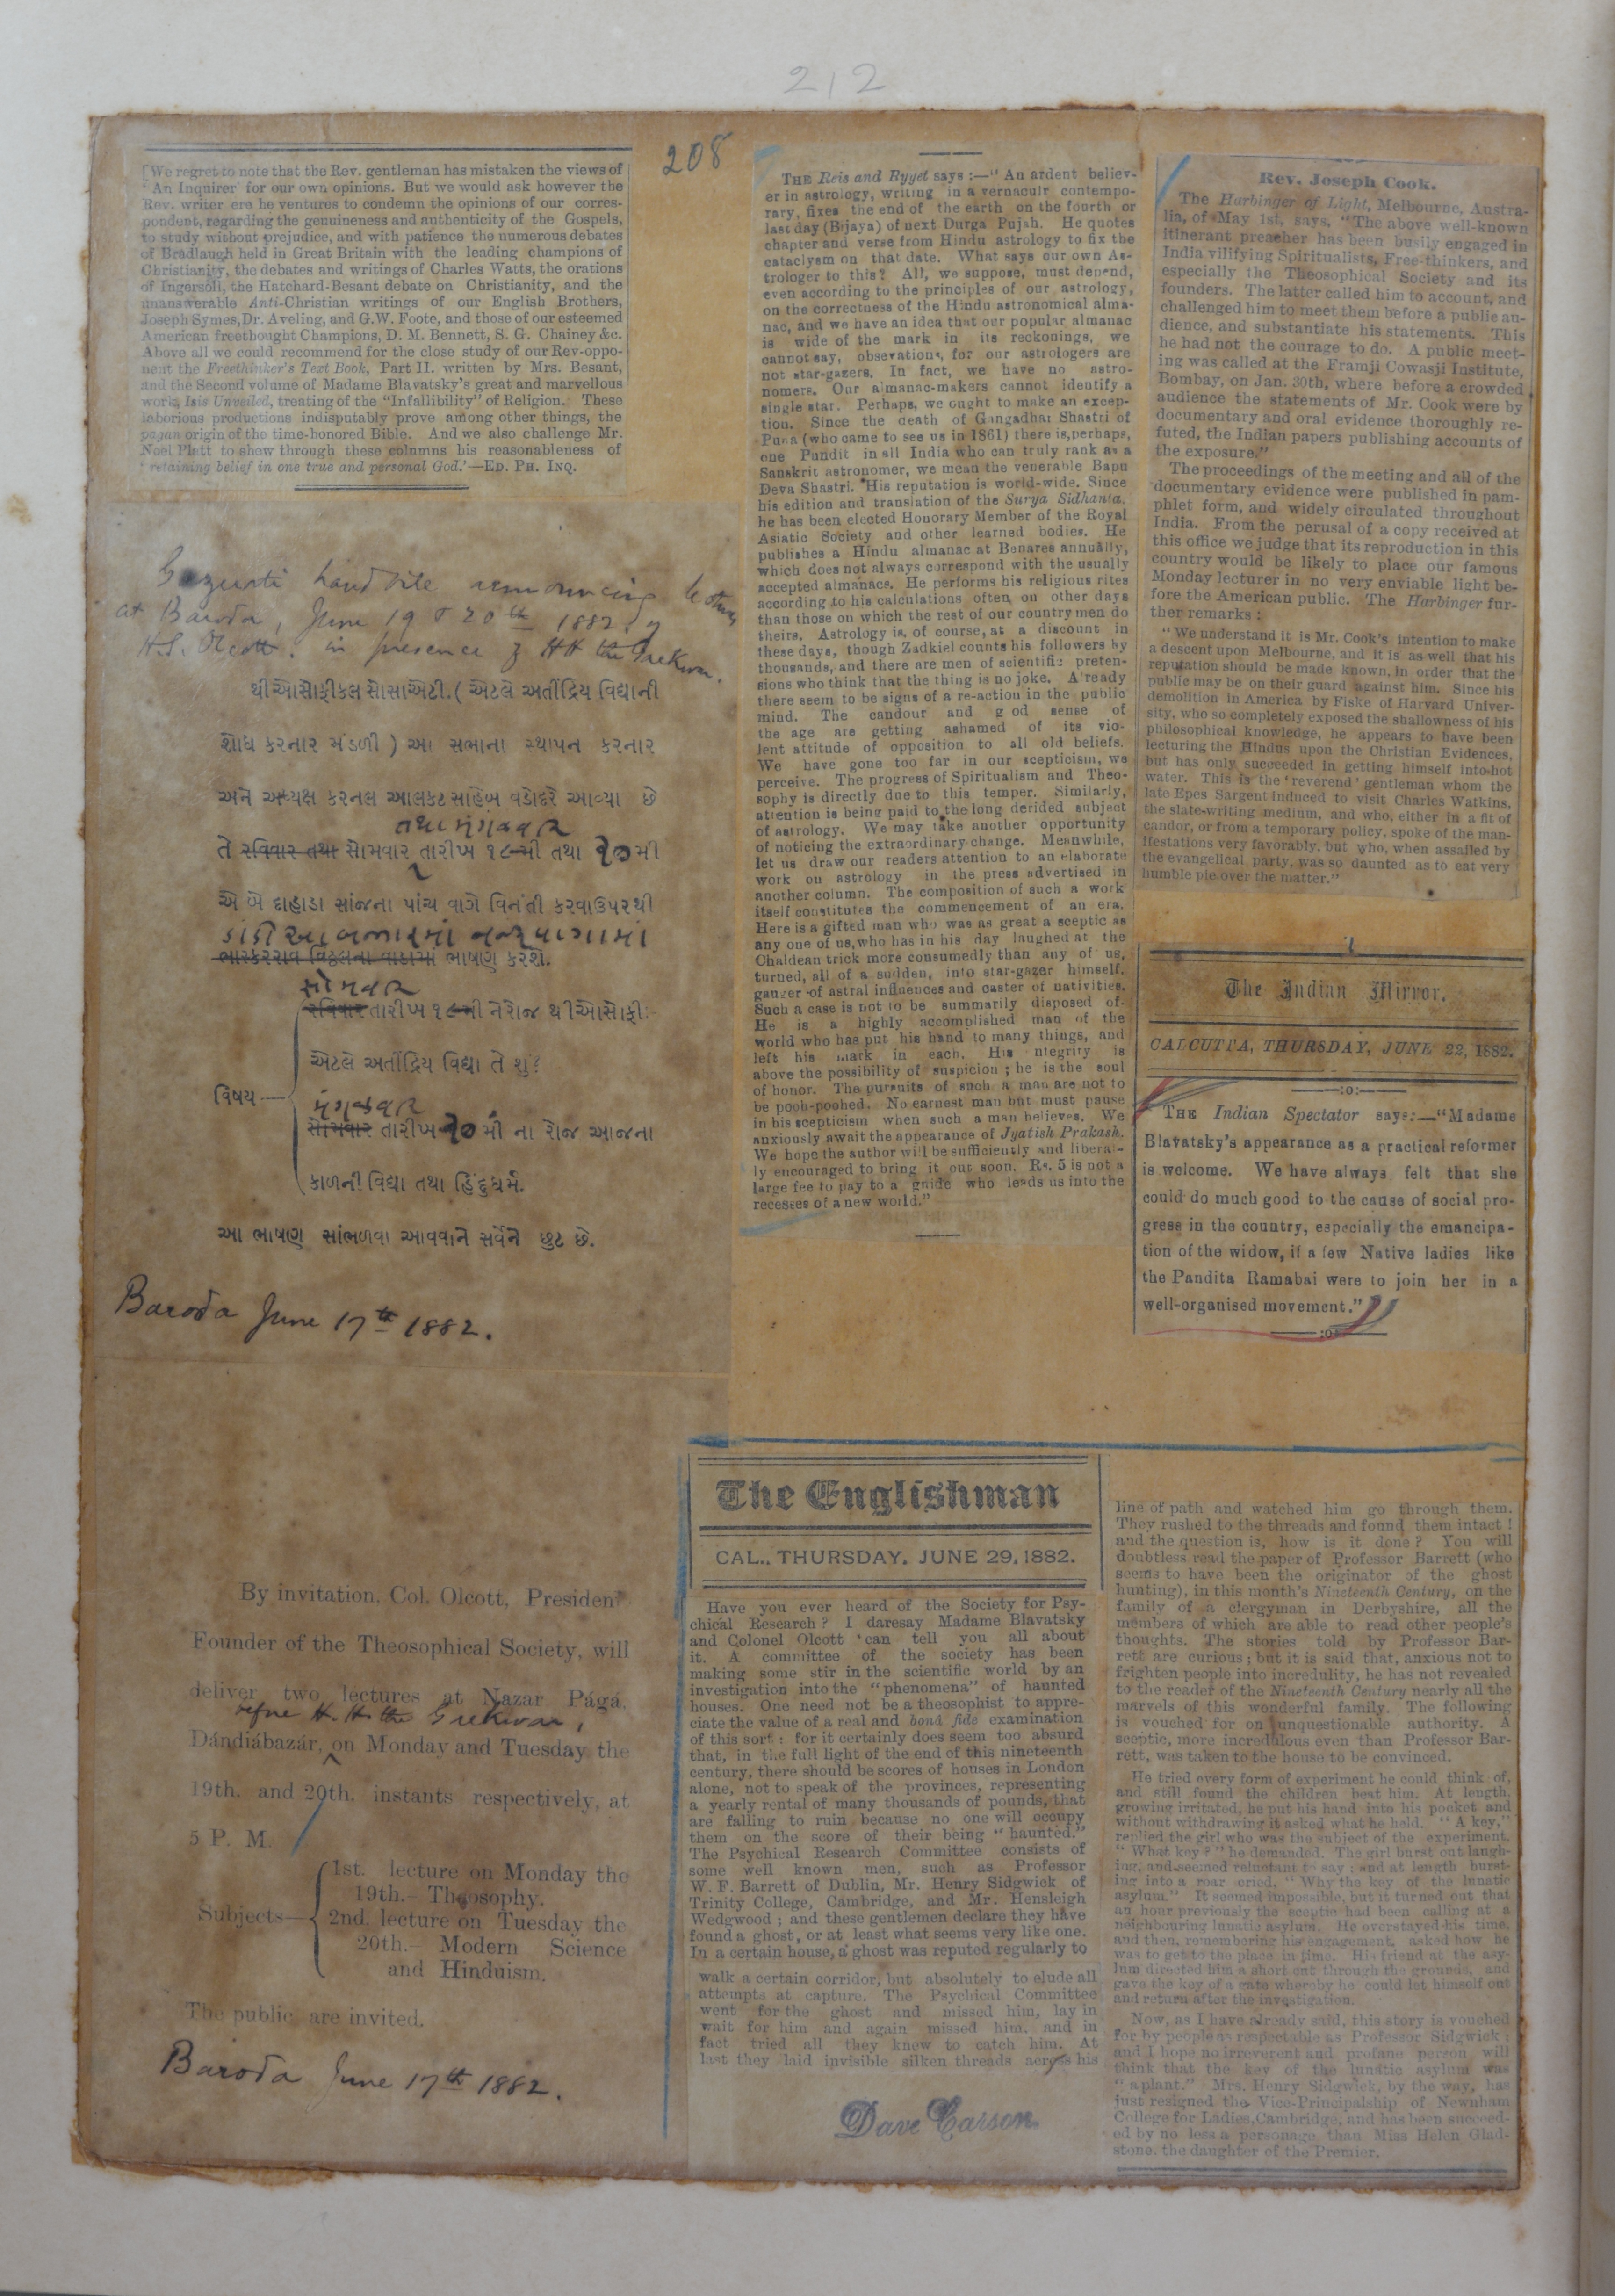 212
208
[We regret to note that the Rev. gentleman has mistaken the views of
'An Inquirer' for our own opinions. But we would ask however the
Rev. writer ere he ventures to condemn the opinions of our corres-
pondent, regarding the genuineness and authenticity of the Gospels,
to study without prejudice, and with patience the numerous debates
of Bradlaugh held in Great Britain with the leading champions of
Christianity, the debates and writings of Charles Watts, the orations
of Ingersoll, the Hatchard-Besant debate on Christianity, and the
unanswerable Anti-Christian writings of our English Brothers,
Joseph Symes, Dr. Aveling, and G.W. Foote, and those of our esteemed
American freethought Champions, D. M. Bennett, S. G. Chainey &c.
Above all we could recommend for the close study of our Rev-oppo-
nent the Freethinker's Text Book, Part II. written by Mrs. Besant,
and the Second volume of Madame Blavatsky's great and marvellous
work, Isis Unveiled, treating of the "Infallibility" of Religion. These
laborious productions indisputably prove among other things, the
pagan origin of the time-honored Bible. And we also challenge Mr.
Noel Platt to show through these columns his reasonableness of
'retaining belief in one true and personal God.'—ED. PH. INQ.
Guzurti hand bile announcing lectures
at Baroda, June 19 & 20th 1882. by
H.S. Olcott. in presence of HH the Gaekwar.
થીઓસોફીકલ સોસાએટી. ( એટલે અતીંદ્રિય વિદ્યાની
શોધ કરનાર મંડળી ) આ સભાના સ્થાપન કરનાર
અને અધ્યક્ષ કરનલ આલકટ સાહેબ વડોદરે આવ્યા છે
તથા મંગળવાર
તે રવિવાર તથા સોમવાર તારીખ ૧૯મી તથા ૨૦મી
એ બે દાહાડા સાંજના પાંચ વાગે વિનંતી કરવાઉપરથી
ડાંડીઆ બજારમાં નજરપાગામાં
ભાસ્કરરાવ વિઠ્ઠલના વાડામાં ભાષણ કરશે.
સોમવાર
રવિવાર તારીખ ૧૯મી નેરોજ થીઓસોફી:
એટલે અતીંદ્રિય વિદ્યા તે શું?
વિષય—
મંગળવાર
સોમવાર તારીખ ૨૦ મી ના રોજ આજના
કાળની વિદ્યા તથા હિંદુધર્મ.
આ ભાષણ સાંભળવા આવવાને સર્વેને છુટ છે.
Baroda June 17th 1882.
By invitation. Col. Olcott, President
Founder of the Theosophical Society, will
deliver two lectures at Nazar Págá,
before H. H. the Gaekwar,
Dándiábazár, on Monday and Tuesday the
19th. and 20th. instants respectively, at
5 P. M.
Subjects—
1st. lecture on Monday the
19th.— Theosophy.
2nd. lecture on Tuesday the
20th.— Modern Science
and Hinduism.
The public are invited.
Baroda June 17th 1882.
THE Reis and Ryyet says :—"An ardent believ-
er in astrology, writing in a vernaculr contempo-
rary, fixes the end of the earth on the fourth or
last day (Bijaya) of next Durga Pujah. He quotes
chapter and verse from Hindu astrology to fix the
cataclysm on that date. What says our own As-
trologer to this? All, we suppose, must depend,
even according to the principles of our astrology,
on the correctness of the Hindu astronomical alma-
nac, and we have an idea that our popular almanac
is wide of the mark in its reckonings, we
cannot say, observations, for our astrologers are
not star-gazers. In fact, we have no astro-
nomers. Our almanac-makers cannot identify a
single star. Perhaps, we ought to make an excep-
tion. Since the death of Gangadhar Shastri of
Puna (who came to see us in 1861) there is, perhaps,
one Pundit in all India who can truly rank as a
Sanskrit astronomer, we mean the venerable Bapu
Deva Shastri. His reputation is world-wide. Since
his edition and translation of the Surya Sidhanta,
he has been elected Honorary Member of the Royal
Asiatic Society and other learned bodies. He
publishes a Hindu almanac at Benares annually,
which does not always correspond with the usually
accepted almanacs. He performs his religious rites
according to his calculations often on other days
than those on which the rest of our countrymen do
theirs. Astrology is, of course, at a discount in
these days, though Zadkiel counts his followers by
thousands, and there are men of scientific preten-
sions who think that the thing is no joke. A'ready
there seem to be signs of a re-action in the public
mind. The candour and g od sense of
the age are getting ashamed of its vio-
lent attitude of opposition to all old beliefs.
We have gone too far in our scepticism, we
perceive. The progress of Spiritualism and Theo-
sophy is directly due to this temper. Similarly,
attention is being paid to the long derided subject
of astrology. We may take another opportunity
of noticing the extraordinary change. Meanwhile,
let us draw our readers attention to an elaborate
work on astrology in the press advertised in
another column. The composition of such a work
itself constitutes the commencement of an era.
Here is a gifted man who was as great a sceptic as
any one of us, who has in his day laughed at the
Chaldean trick more consumedly than any of us,
turned, all of a sudden, into star-gazer himself,
gauger of astral influences and caster of nativities.
Such a case is not to be summarily disposed of.
He is a highly accomplished man of the
world who has put his hand to many things, and
left his mark in each. His ntegrity is
above the possibility of suspicion ; he is the soul
of honor. The pursuits of such a man are not to
be pooh-poohed. No earnest man but must pause
in his scepticism when such a man believes. We
anxiously await the appearance of Jyatish Prakash.
We hope the author will be sufficiently and liberal-
ly encouraged to bring it out soon. Rs. 5 is not a
large fee to pay to a guide who leads us into the
recesses of a new world."
Rev. Joseph Cook.
The Harbinger of Light, Melbourne, Austra-
lia, of May 1st, says, "The above well-known
itinerant preacher has been busily engaged in
India vilifying Spiritualists, Free-thinkers, and
especially the Theosophical Society and its
founders. The latter called him to account, and
challenged him to meet them before a public au-
dience, and substantiate his statements. This
he had not the courage to do. A public meet-
ing was called at the Framji Cowasji Institute,
Bombay, on Jan. 30th, where before a crowded
audience the statements of Mr. Cook were by
documentary and oral evidence thoroughly re-
futed, the Indian papers publishing accounts of
the exposure."
The proceedings of the meeting and all of the
documentary evidence were published in pam-
phlet form, and widely circulated throughout
India. From the perusal of a copy received at
this office we judge that its reproduction in this
country would be likely to place our famous
Monday lecturer in no very enviable light be-
fore the American public. The Harbinger fur-
ther remarks :
"We understand it is Mr. Cook's intention to make
a descent upon Melbourne, and it is as well that his
reputation should be made known, in order that the
public may be on their guard against him. Since his
demolition in America by Fiske of Harvard Univer-
sity, who so completely exposed the shallowness of his
philosophical knowledge, he appears to have been
lecturing the Hindus upon the Christian Evidences,
but has only succeeded in getting himself into hot
water. This is the 'reverend' gentleman whom the
late Epes Sargent induced to visit Charles Watkins,
the slate-writing medium, and who, either in a fit of
candor, or from a temporary policy, spoke of the man-
ifestations very favorably, but who, when assailed by
the evangelical party, was so daunted as to eat very
humble pie over the matter."
The Indian Mirror.
CALCUTTA, THURSDAY, JUNE 22, 1882.
:o:
THE Indian Spectator says:—"Madame
Blavatsky's appearance as a practical reformer
is welcome. We have always felt that she
could do much good to the cause of social pro-
gress in the country, especially the emancipa-
tion of the widow, if a few Native ladies like
the Pandita Ramabai were to join her in a
well-organised movement."
:o:
The Englishman
CAL., THURSDAY, JUNE 29, 1882.
Have you ever heard of the Society for Psy-
chical Research? I daresay Madame Blavatsky
and Colonel Olcott can tell you all about
it. A committee of the society has been
making some stir in the scientific world by an
investigation into the "phenomena" of haunted
houses. One need not be a theosophist to appre-
ciate the value of a real and bonâ fide examination
of this sort : for it certainly does seem too absurd
that, in the full light of the end of this nineteenth
century, there should be scores of houses in London
alone, not to speak of the provinces, representing
a yearly rental of many thousands of pounds, that
are falling to ruin because no one will occupy
them on the score of their being "haunted."
The Psychical Research Committee consists of
some well known men, such as Professor
W. F. Barrett of Dublin, Mr. Henry Sidgwick of
Trinity College, Cambridge, and Mr. Hensleigh
Wedgwood ; and these gentlemen declare they have
found a ghost, or at least what seems very like one.
In a certain house, a ghost was reputed regularly to
walk a certain corridor, but absolutely to elude all
attempts at capture. The Psychical Committee
went for the ghost and missed him, lay in
wait for him and again missed him, and in
fact tried all they knew to catch him. At
last they laid invisible silken threads across his
Dave Carson
line of path and watched him go through them.
They rushed to the threads and found them intact !
and the question is, how is it done? You will
doubtless read the paper of Professor Barrett (who
seems to have been the originator of the ghost
hunting), in this month's Nineteenth Century, on the
family of a clergyman in Derbyshire, all the
members of which are able to read other people's
thoughts. The stories told by Professor Bar-
rett are curious ; but it is said that, anxious not to
frighten people into incredulity, he has not revealed
to the reader of the Nineteenth Century nearly all the
marvels of this wonderful family. The following
is vouched for on unquestionable authority. A
sceptic, more incredulous even than Professor Bar-
rett, was taken to the house to be convinced.
He tried every form of experiment he could think of,
and still found the children beat him. At length,
growing irritated, he put his hand into his pocket and
without withdrawing it asked what he held. "A key,"
replied the girl who was the subject of the experiment.
"What key?" he demanded. The girl burst out laugh-
ing, and seemed reluctant to say ; and at length burst-
ing into a roar cried, "Why the key of the lunatic
asylum." It seemed impossible, but it turned out that
an hour previously the sceptic had been calling at a
neighbouring lunatic asylum. He overstayed his time,
and then, remembering his engagement, asked how he
was to get to the place in time. His friend at the asy-
lum directed him a short cut through the grounds, and
gave the key of a gate whereby he could let himself out
and return after the investigation.
Now, as I have already said, this story is vouched
for by people as respectable as Professor Sidgwick ;
and I hope no irreverent and profane person will
think that the key of the lunatic asylum was
"a plant." Mrs. Henry Sidgwick, by the way, has
just resigned the Vice-Principalship of Newnham
College for Ladies, Cambridge, and has been succeed-
ed by no less a personage than Miss Helen Glad-
stone, the daughter of the Premier.